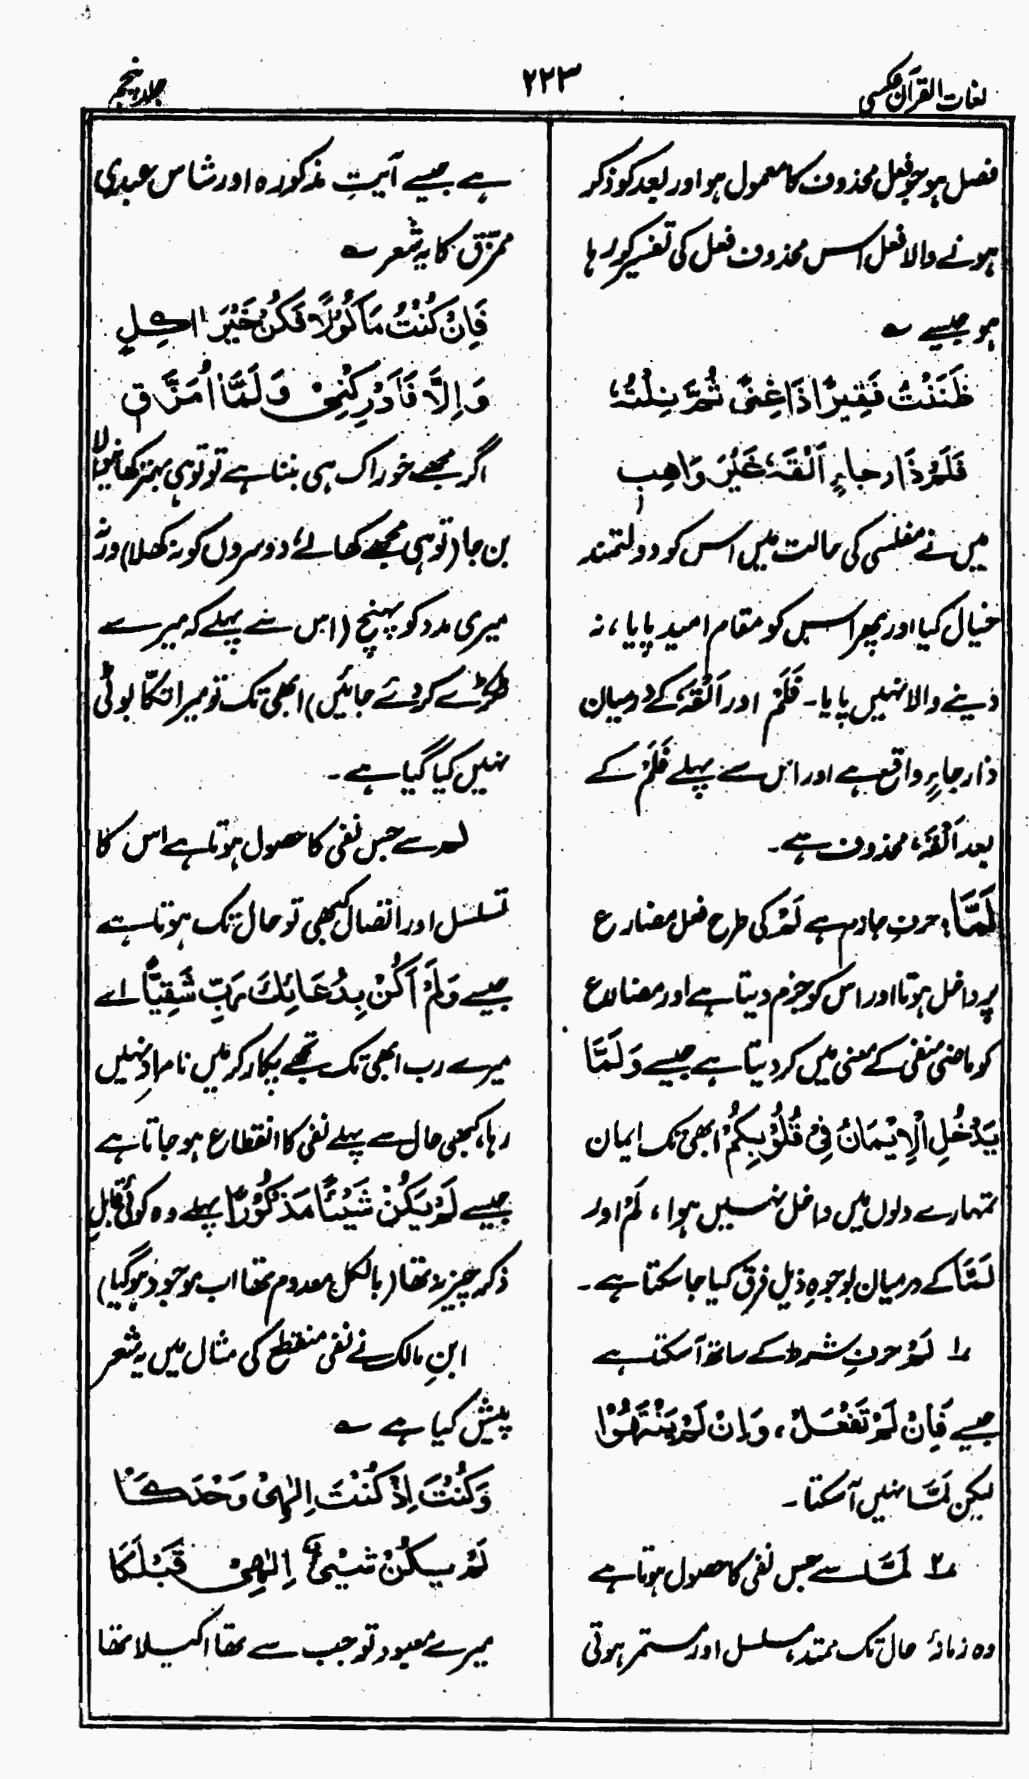 لغات القرآن عکسی
۲۲۳
جلد پنجم
فصل ہو جو فعل محذوف کا معمول ہو اور بعد کو ذکر
ہونے والا فعل اس محذوف فعل کی تفسیر کر رہا
ہو جیسے ؎
ظَنَنْتُ فَقِیْرًا ذَا غِنًی ثُمَّ نِلْتُہٗ
فَلَمْ ذَا رجاءٍ اَلْقَہٗ غَیْرَ وَاھِبٖ
میں نے مفلسی کی حالت میں اس کو دولتمند
خیال کیا اور پھر اس کو مقام امید پایا، نہ
دینے والا نہیں پایا۔ فَلَمْ اور اَلْقَہٗ کے درمیان
ذا رجاءٍ واقع ہے اور اس سے پہلے فَلَمْ کے
بعد اَلْقَہٗ، محذوف ہے۔
لَمَّا: حرفِ جازم ہے لَمْ کی طرح فعل مضارع
پر داخل ہوتا اور اس کو جزم دیتا ہے اور مضارع
کو ماضی منفی کے معنی میں کر دیتا ہے جیسے وَلَمَّا
یَدْخُلِ الْاِیْمَانُ فِیْ قُلُوْبِکُمْ ابھی تک ایمان
تمہارے دلوں میں داخل نہیں ہوا، لَمْ اور
لَمَّا کے درمیان بوجوہِ ذیل فرق کیا جا سکتا ہے۔
۱؎ لَمْ حرفِ شرط کے ساتھ آ سکتا ہے
جیسے فَاِنْ لَمْ تَفْعَلْ، وَاِنْ لَمْ یَنْتَھُوْا
لیکن لَمَّا نہیں آ سکتا۔
۲؎ لَمَّا سے جس نفی کا حصول ہوتا ہے
وہ زمانۂ حال تک ممتد، مسلسل اور مستمر ہوتی
ہے جیسے آیتِ مذکورہ اور شاس عبدی
ممزّق کا یہ شعر ؎
فَاِنْ کُنْتُ مَاکُوْلًا فَکُنْ خَیْرَ اٰکِلٍ
وَاِلَّا فَاَدْرِکْنِیْ وَلَمَّا اُمَزَّقٖ
اگر مجھے خوراک ہی بننا ہے تو تو ہی بہتر کھانیوالا
بن جا (تو ہی مجھے کھالے، دوسروں کو نہ کھلا) ورنہ
میری مدد کو پہنچ (اس سے پہلے کہ میرے
ٹکڑے کر دئے جائیں) ابھی تک تو میرا تکّا بوٹی
نہیں کیا گیا ہے۔
لم سے جس نفی کا حصول ہوتا ہے اس کا
تسلسل اور اتصال کبھی تو حال تک ہوتا ہے
جیسے وَلَمْ اَکُنْ بِدُعَائِکَ رَبِّ شَقِیًّا اے
میرے رب ابھی تک تجھے پکار کر میں نامراد نہیں
رہا، کبھی حال سے پہلے نفی کا انقطاع ہو جاتا ہے
جیسے لَمْ یَکُنْ شَیْئًا مَذْکُوْرًا پہلے وہ کوئی قابلِ
ذکر چیز نہ تھا (بالکل معدوم تھا اب موجود ہو گیا)
ابنِ مالک نے نفی منقطع کی مثال میں یہ شعر
پیش کیا ہے ؎
وَکُنْتَ اِذْ کُنْتَ اِلٰہِیْ وَحْدَکَا
لَمْ یَکُنْ شَیْئٌ اِلٰھِیْ قَبْلَکَا
میرے معبود تو جب سے تھا اکیلا تھا